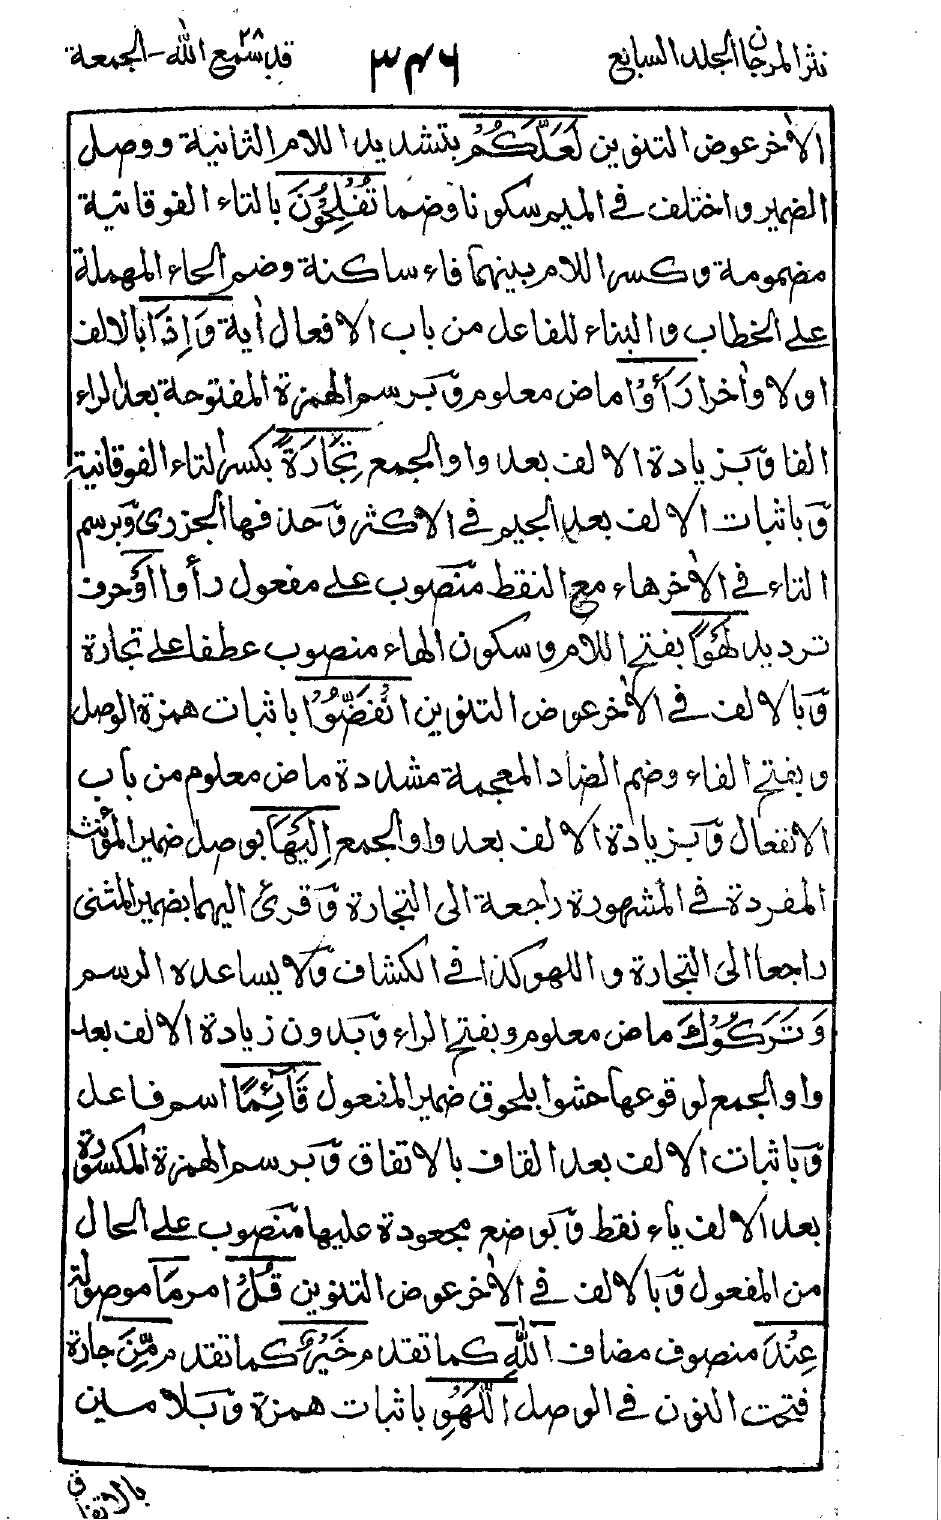 نثر المرجان الجلد السابع ٣٤٦ قد سمع الله ٢٨ - الجمعة
الاٰخر عوض التنوين لَعَلَّكُمْ بتشديد اللام الثانية ووصل
الضمير واختلف في الميم سكونا وضما تُفْلِحُوْنَ بالتاء الفوقانية
مضمومة وكسر اللام بينهما فاء ساكنة وضم الحاء المهملة
على الخطاب والبناء للفاعل من باب الافعال اٰية وَاِذَا بالالف
اولا واٰخرا رَاَوْا ماض معلوم وّبرسم الهمزة المفتوحة بعد الراء
الفا وّبزيادة الالف بعد واو الجمع تِجَارَةً بكسر التاء الفوقانية
وّباثبات الالف بعد الجيم في الاكثر وّحذفها الجزرى وّبرسم
التاء في الاٰخر هاء مع النقط منّصوب على مفعول رأوا اَوْ حرف
ترديد لَهْوًا بفتح اللام وسكون الهاء منصوب عطفا على تجارة
وّبالالف في الاٰخر عوض التنوين انْفَضُّوْا باثبات همزة الوصل
وبفتح الفاء وضم الضاد المعجمة مشددة ماض معلوم من باب
الانفعال وّبزيادة الالف بعد واو الجمع اِلَيْهَا بوصل ضمير المؤنث
المفردة في المشهورة راجعة الى التجارة وّقرئ اليهما بضمير المثنى
راجعا الى التجارة واللهو كذا في الكشاف وّلا يساعده الرسم
وَتَرَكُوْكَ ماض معلوم وبفتح الراء وّبدون زيادة الالف بعد
واو الجمع لوقوعها حشوا بلحوق ضمير المفعول قَآئِمًا اسم فاعل
وّباثبات الالف بعد القاف بالاتفاق وّبرسم الهمزة المكسورة
بعد الالف ياء نقط وّبوضع مجعودة عليها منّصوب على الحال
من المفعول وّبالالف في الاٰخر عوض التنوين قُلْ امر مَا موصولة
عِنْدَ منصوف مضاف اللّٰهِ كما تقدم خَيْرٌ كما تقدم مِّنَ جارة
فتحت النون في الوصل اللَّهْوِ باثبات همزة وّبلامين
بالاتفاق